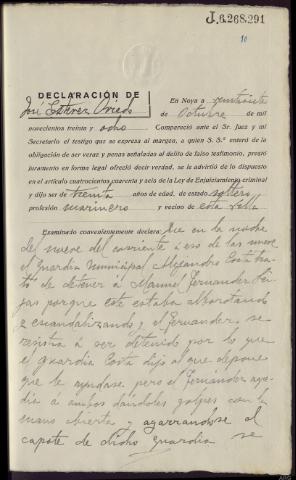 J.6.268.291
10
DECLARACIÓN DE
José Esteves Oviedo
En Noya a veintisiete
de Octubre de mil
novecientos treinta y ocho. Compareció ante el Sr. Juez y mi
Secretario el testigo que se expresa al margen, a quien S. S.ª enteró de la
obligación de ser veraz y penas señaladas al delito de falso testimonio, prestó
juramento en forma legal ofreció decir verdad, se le advirtió de lo dispuesto
en el artículo cuatrocientos cuarenta y seis de la Ley de Enjuiciamiento criminal
y dijo ser de treinta años de edad, de estado soltero
profesión marinero y vecino de esta Villa
Examinado convenientemente declara: Que en la noche
del nueve del corriente á eso de las nueve
el Guardia Municipal Alejandro Costa tra-
tó de detener á Manuel Fernandez
porque este estaba alborotando
y escandalizando y el Fernandez se
resistia á ser detenido por lo que
el guardia Costa dijo al que depone
que le ayudase pero el Fernandez agre-
dia á ambos dandoles golpes con la
mano abierta y agarrandose al
capote de dicho guardia se